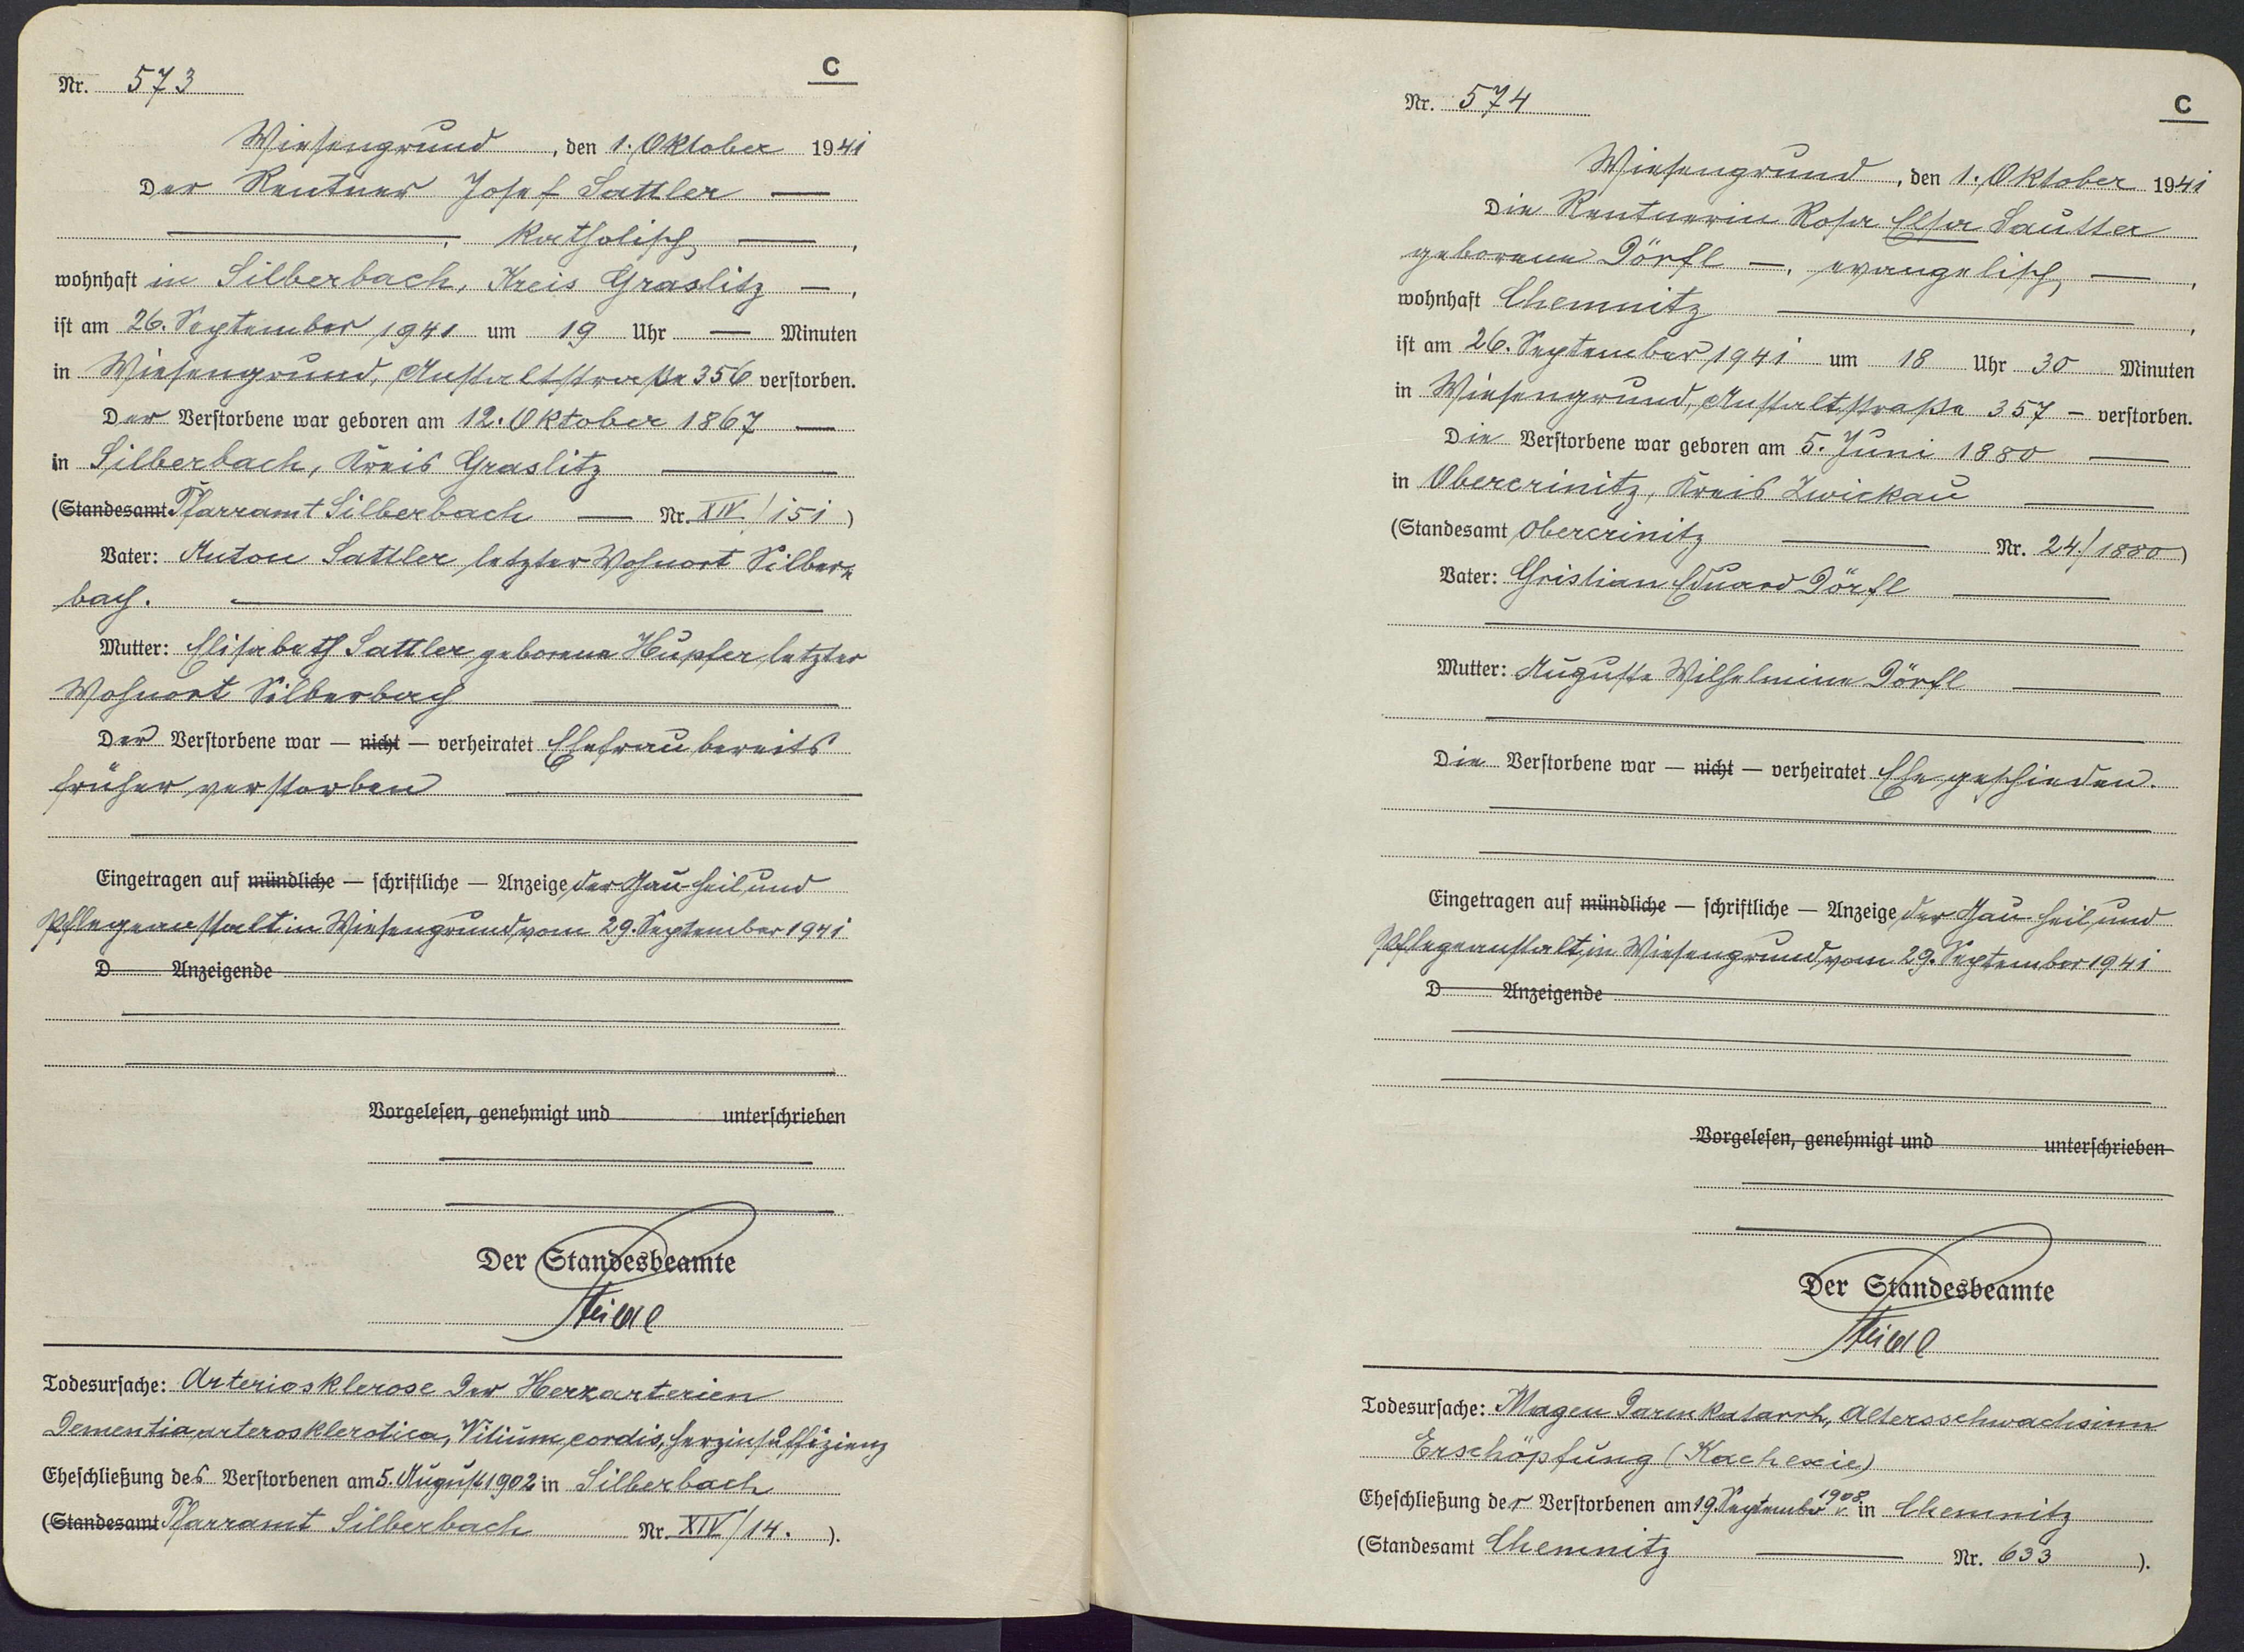 C
Nr. 573
Wiesengrund, den 1. Oktober 1941
Der Rentner Josef Sattler —
—, katholisch —,
wohnhaft in Silberbach, Kreis Graslitz —,
ist am 26. September 1941 um 19 Uhr — Minuten
in Wiesengrund, Anstaltstraße 356 verstorben.
Der Verstorbene war geboren am 12. Oktober 1867 —
in Silberbach, Kreis Graslitz —
(Standesamt Pfarramt Silberbach — Nr. XIV/151)
Vater: Anton Sattler letzter Wohnort Silber-
bach. —
Mutter: Elisabeth Sattler geborene Hupfer letzter
Wohnort Silberbach —
Der Verstorbene war — nicht — verheiratet Ehefrau bereits
früher verstorben —
Eingetragen auf mündliche — schriftliche — Anzeige der Gau-Heil und
Pflegeanstalt in Wiesengrund vom 29. September 1941
D Anzeigende
Vorgelesen, genehmigt und unterschrieben
Der Standesbeamte
Todesursache: Arteriosklerose der Herzarterien
Dementia arterosklerotica, Vitium cordis, Herzinsuffizienz
Eheschließung des Verstorbenen am 5. August 1902 in Silberbach
(Standesamt Pfarramt Silberbach Nr. XIV/14.).
C
Nr. 574
Wiesengrund, den 1. Oktober 1941
Die Rentnerin Rosa Elsa Sautter
geborene Dörfl —, evangelisch —,
wohnhaft Chemnitz —,
ist am 26. September 1941 um 18 Uhr 30 Minuten
in Wiesengrund, Anstaltstraße 357 — verstorben.
Die Verstorbene war geboren am 5. Juni 1880 —
in Obercrinitz, Kreis Zwickau —
(Standesamt Obercrinitz — Nr. 24/1880)
Vater: Christian Eduard Dörfl —
Mutter: Auguste Wilhelmine Dörfl —
Die Verstorbene war — nicht — verheiratet Ehe geschieden.
Eingetragen auf mündliche — schriftliche — Anzeige der Gau-Heil und
Pflegeanstalt in Wiesengrund vom 29. September 1941
D Anzeigende
Vorgelesen, genehmigt und unterschrieben
Der Standesbeamte
Todesursache: Magen Darmkatarrh, Altersschwachsinn
Erschöpfung (Kachexie)
Eheschließung der Verstorbenen am 19. September 1908 in Chemnitz
(Standesamt Chemnitz — Nr. 633).